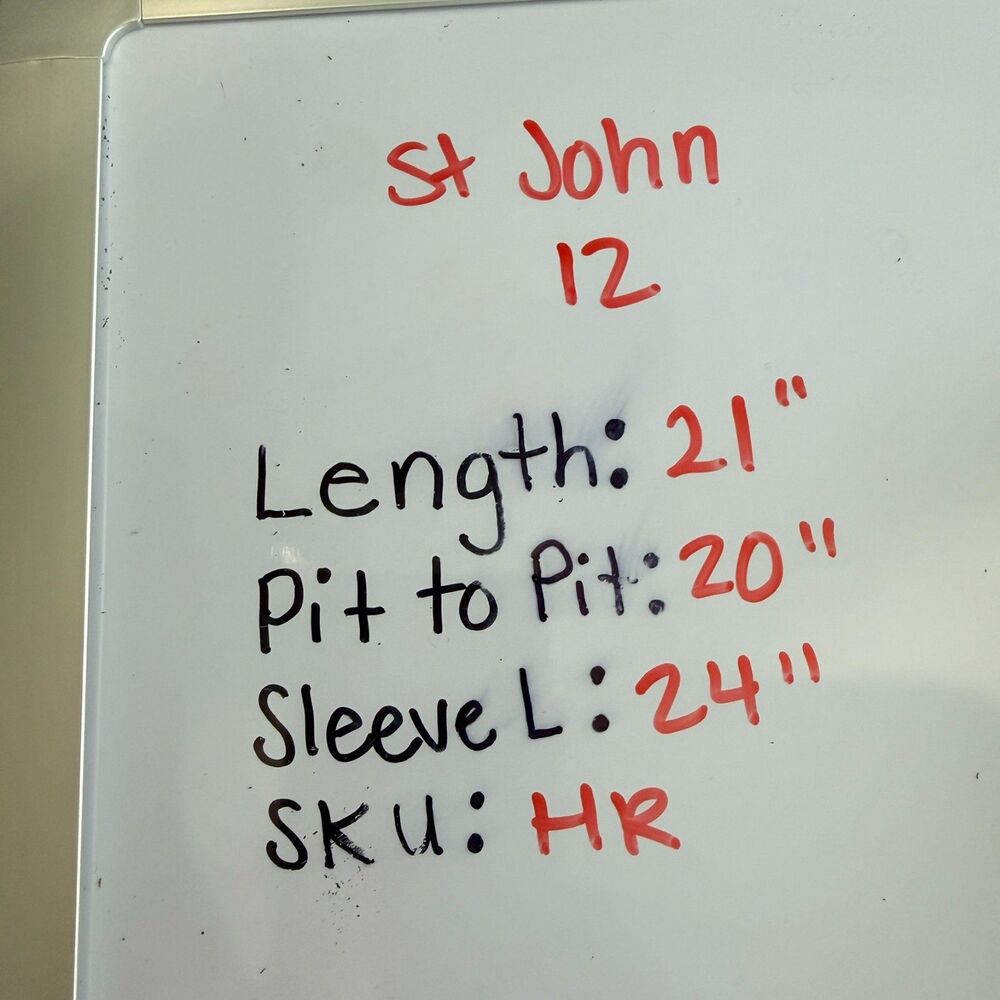 St John
12
Length: 21"
Pit to Pit: 20"
Sleeve L: 24"
SKU: HR